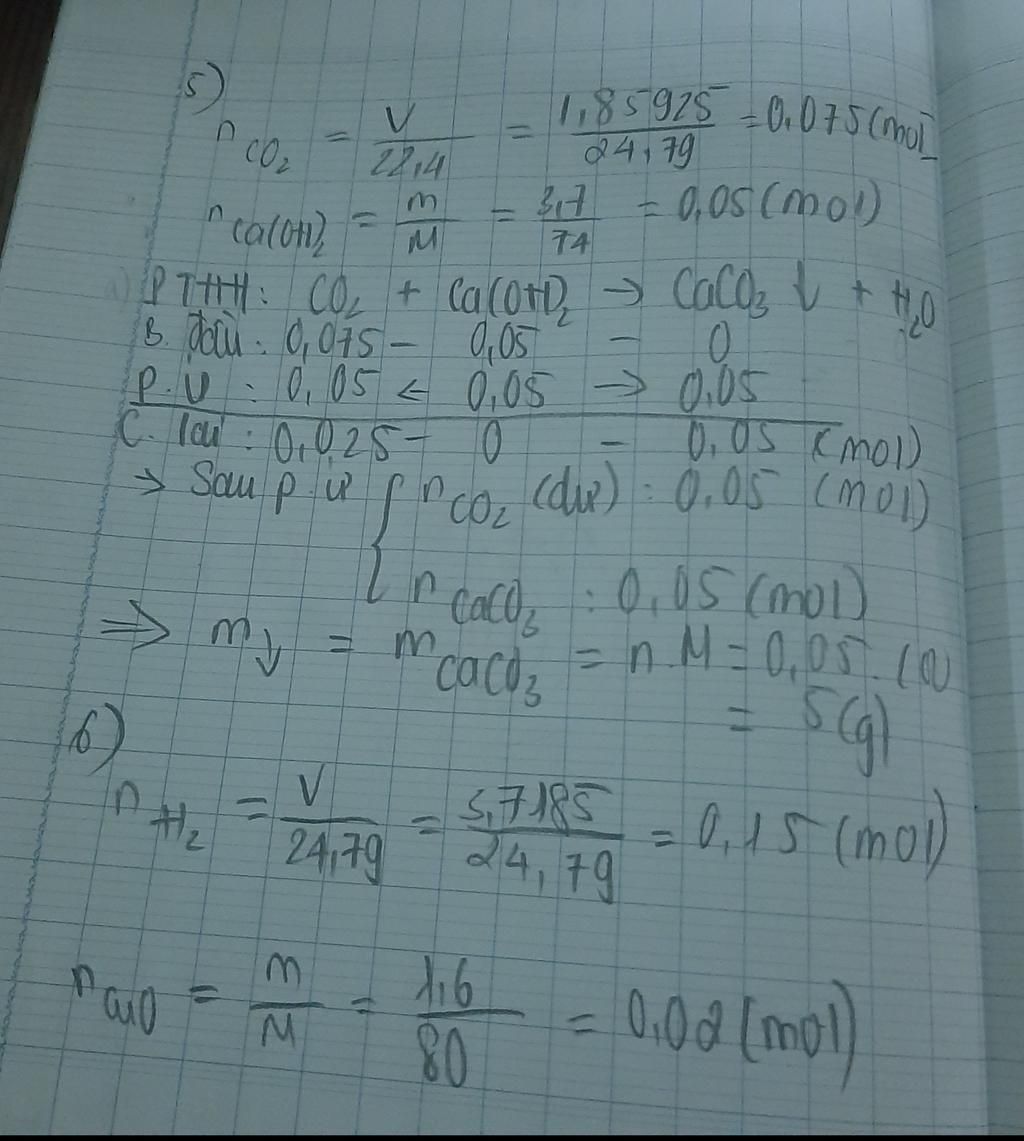 5)
n CO₂ = V/22,4 = 1,85925/24,79 = 0,075 (mol
n Ca(OH)₂ = m/M = 3,7/74 = 0,05 (mol)
PTHH: CO₂ + Ca(OH)₂ → CaCO₃ ↓ + H₂O
B. đầu: 0,075 - 0,05 - 0
P.Ư : 0,05 ← 0,05 → 0,05
C. lại : 0,025 - 0 - 0,05 (mol)
→ Sau p.ư { n CO₂ (dư) : 0,05 (mol)
n CaCO₃ : 0,05 (mol)
⇒ m↓ = m CaCO₃ = n.M = 0,05.
= 5(g)
6)
n H₂ = V/24,79 = 3,7185/24,79 = 0,15 (mol)
n CuO = m/M = 1,6/80 = 0,02 (mol)